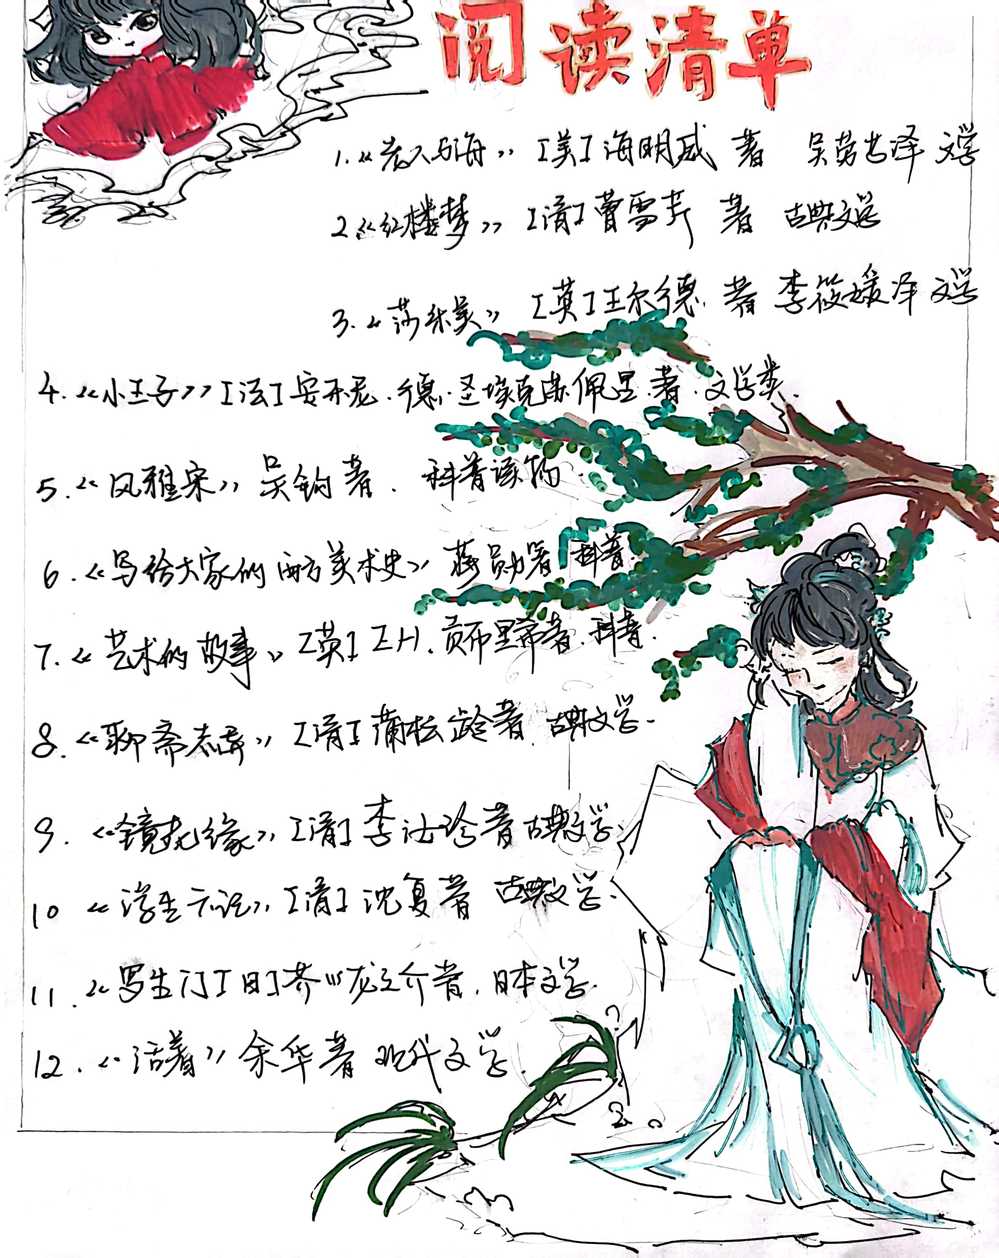 阅读清单
1.《老人与海》 [美]海明威 著 吴劳 译 文学
2《红楼梦》 [清]曹雪芹 著 古典文学
3.《莎乐美》 [英]王尔德 著 李筱媛译 文学
4.《小王子》[法]安东尼.德.圣埃克苏佩里.著.文学类.
5.《风雅宋》吴钩著. 科普读物.
6.《写给大家的西方美术史》蒋勋著 科普.
7.《艺术的故事》[英]E.H.贡布里希著.科普.
8.《聊斋志异》[清]蒲松龄著.古典文学.
9.《镜花缘》[清]李汝珍著 古典文学.
10《浮生六记》[清]沈复著 古典文学.
11.《罗生门[日]芥川龙之介著.日本文学.
12.《活着》余华著 现代文学.